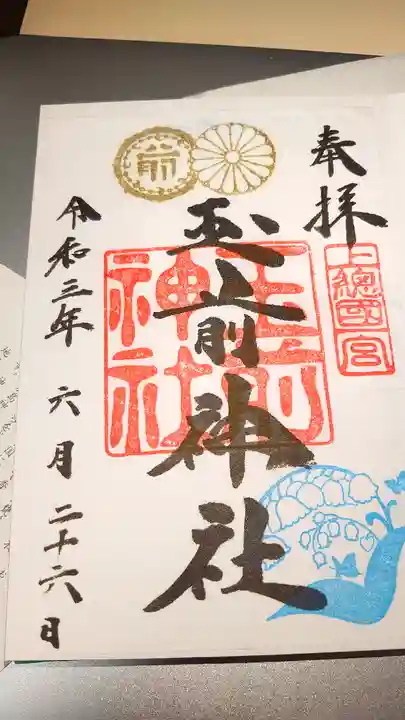 奉拝
上總國一宮
前
玉前神社
玉前神社
令和三年 六月 二十六日